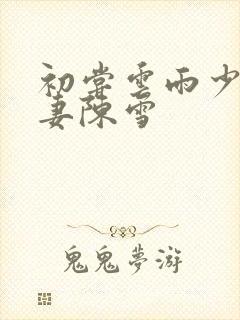 初尝雲雨少
妻陳雪
鬼鬼夢游